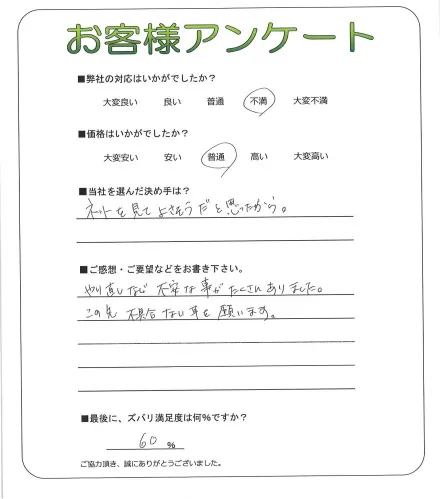 お客様アンケート
■弊社の対応はいかがでしたか？
大変良い 良い 普通 不満 大変不満
■価格はいかがでしたか？
大変安い 安い 普通 高い 大変高い
■当社を選んだ決め手は？
ネットを見てよさそうだと思ったから。
■ご感想・ご要望などをお書き下さい。
やり直しなど不安な事がたくさんありました。
この先不具合ない事を願います。
■最後に、ズバリ満足度は何%ですか？
60 %
ご協力頂き、誠にありがとうございました。